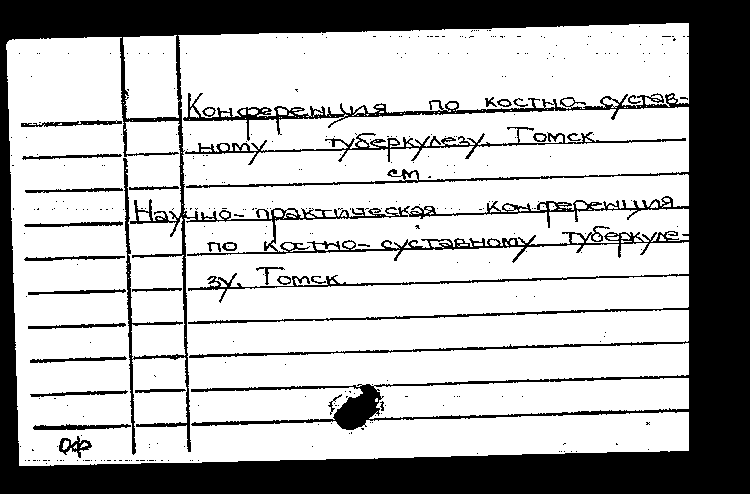 Конференция по костно-сустав-
ному туберкулезу. Томск.
см.
Научно-практическая конференция
по костно-суставному туберкуле-
зу. Томск.
ОФ